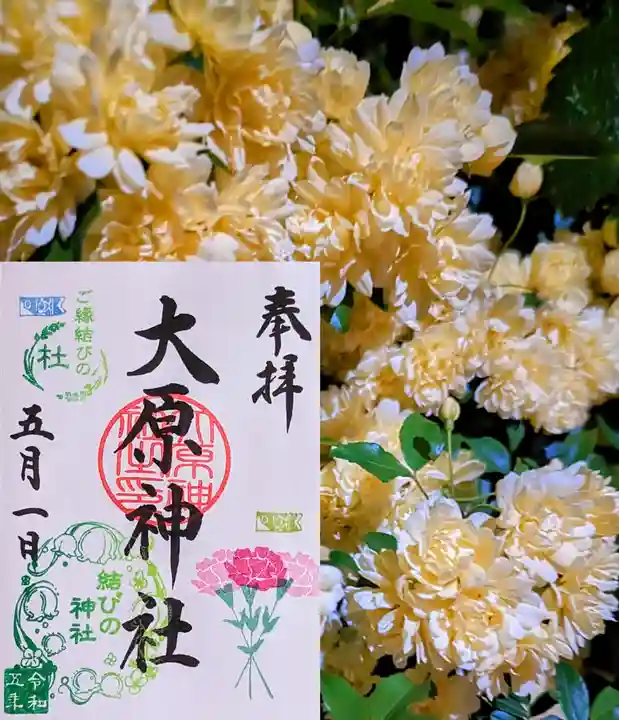 奉拝
大原神社
ご縁結びの
杜
五月一日
結びの
神社
令和
五年